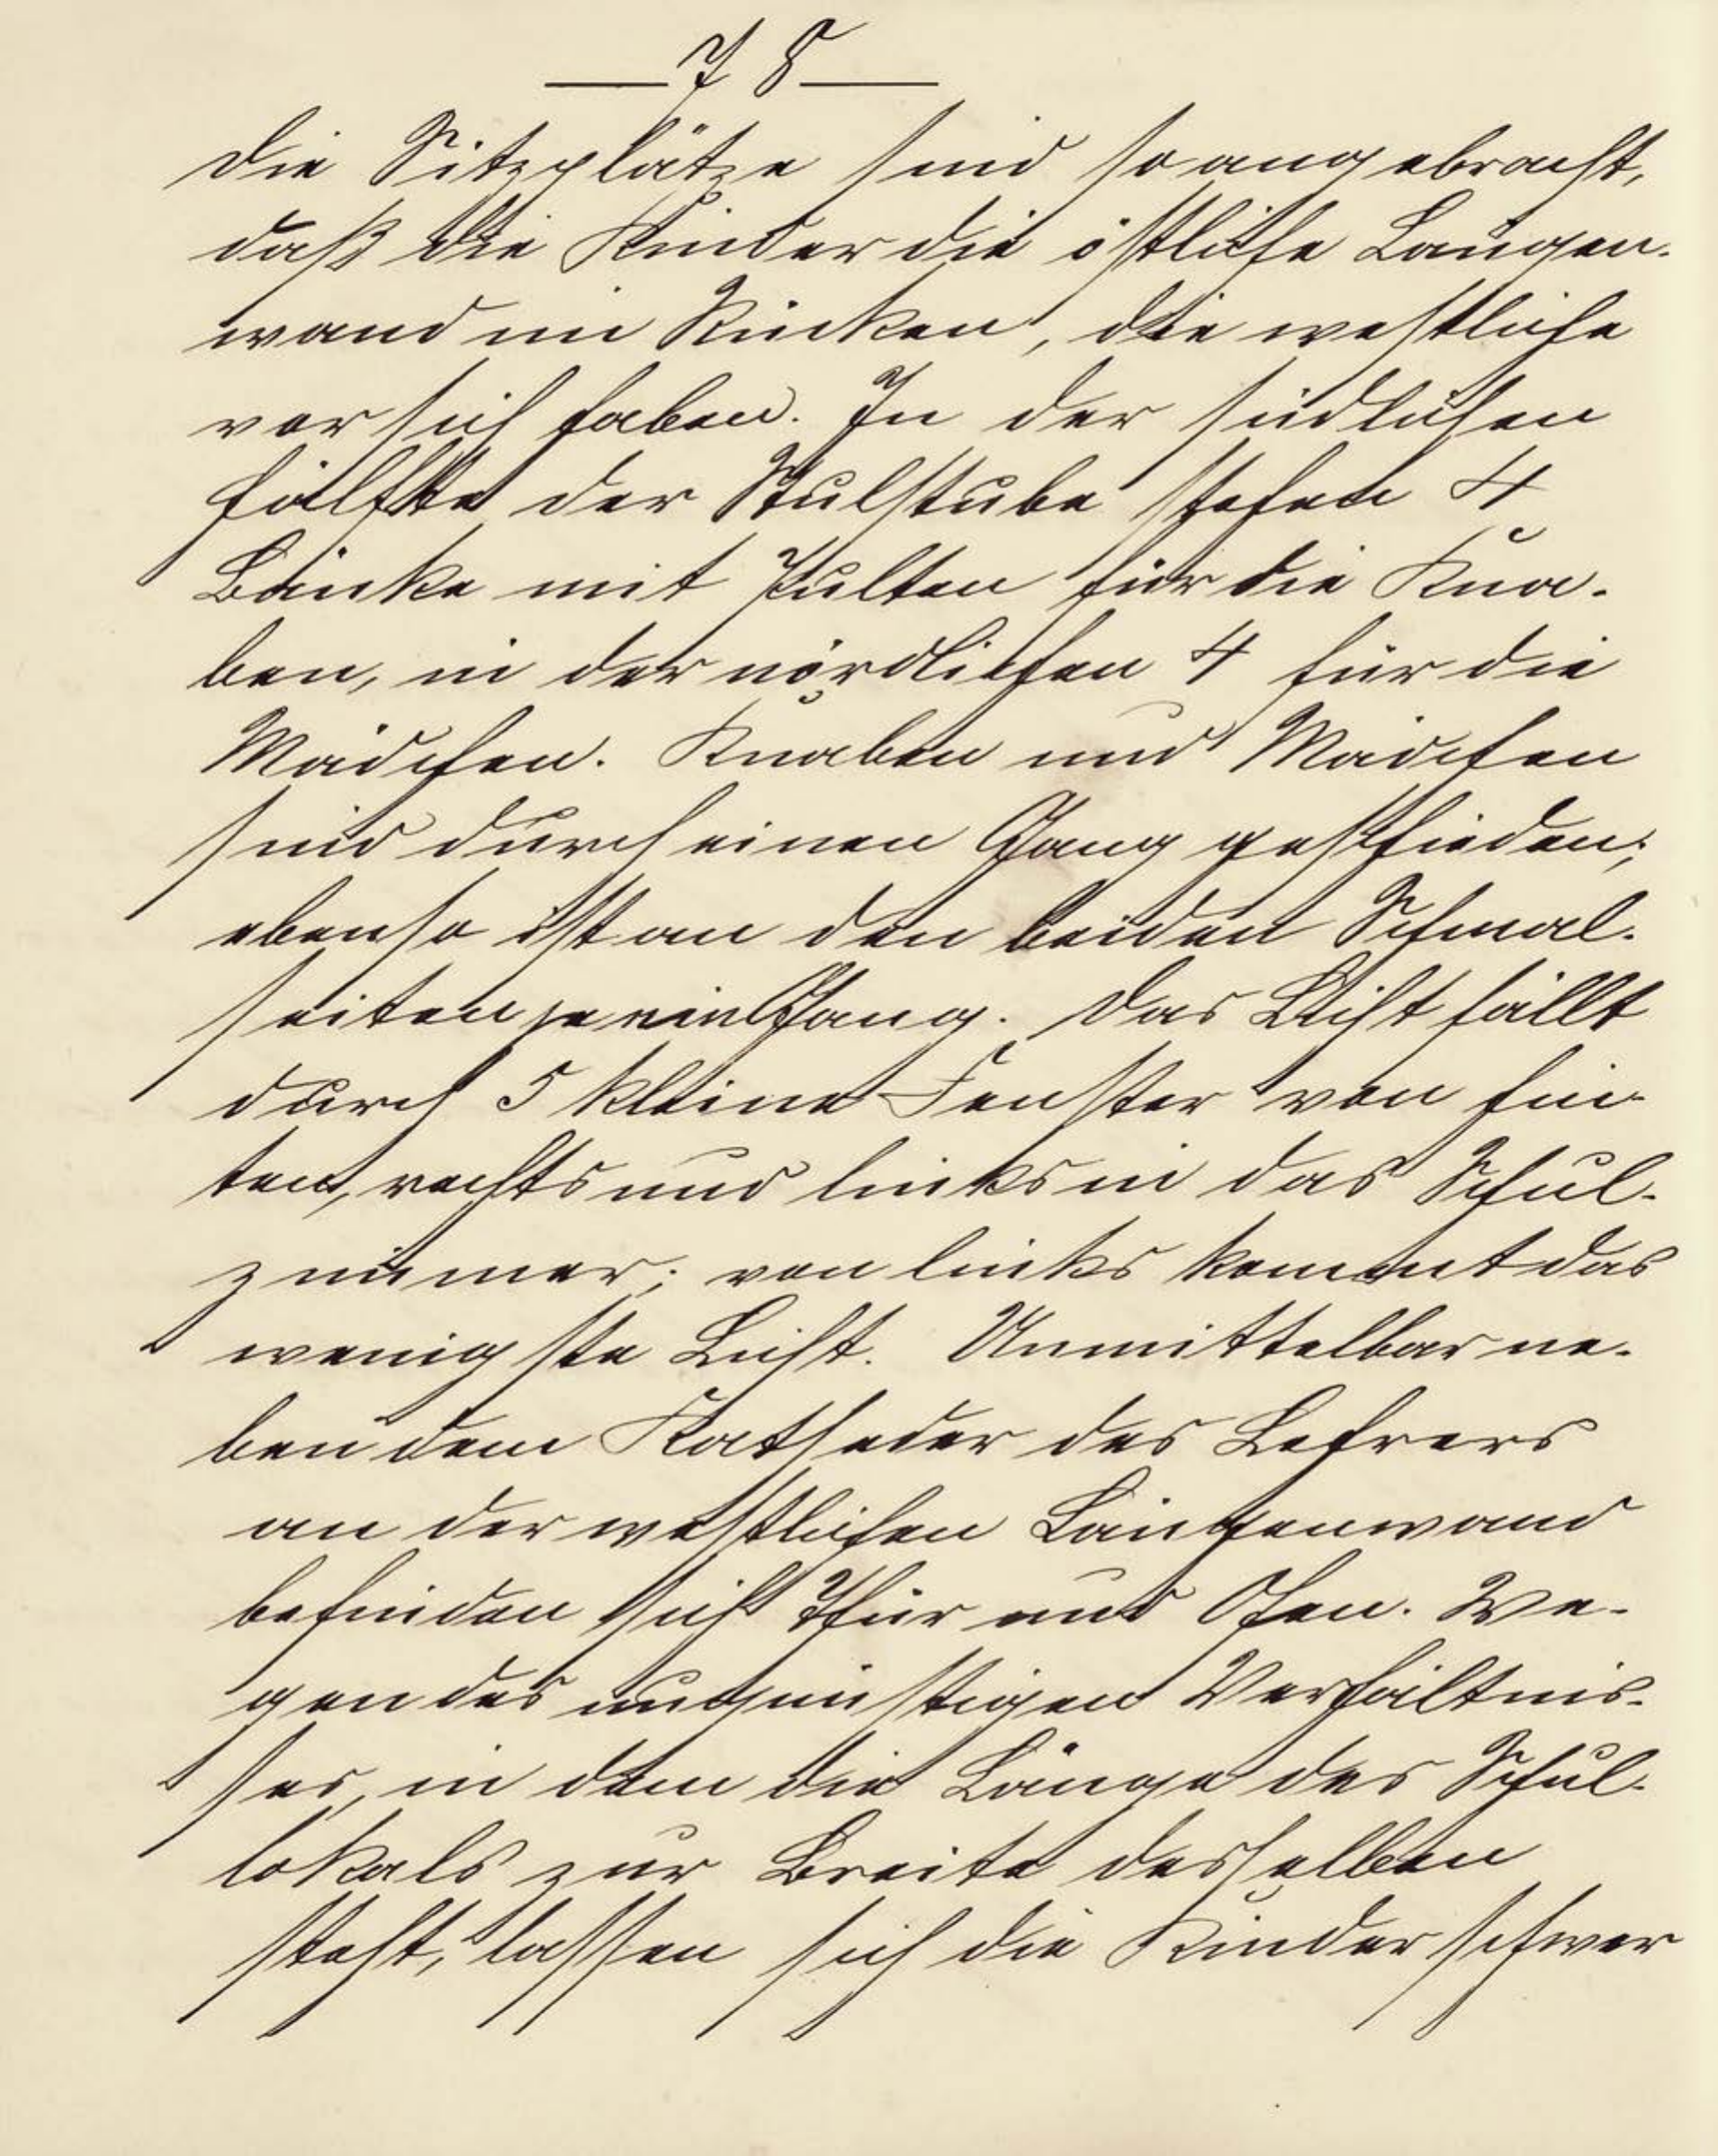 — 78 —
Die Sitzplätze sind so angebracht,
daß die Kinder die östliche Längen-
wand im Rücken, die westliche
vor sich haben. In der südlichen
Hälfte der Schulstube stehen 4
Bänke mit Pulten für die Kna-
ben, in der nördlichen 4 für die
Mädchen. Knaben und Mädchen
sind durch einen Gang geschieden;
ebenso ist an den beiden Schmal-
seiten je ein Gang. Das Licht fällt
durch 5 kleine Fenster von hin-
ten, rechts und links in das Schul-
zimmer; von links kommt das
wenigste Licht. Unmittelbar ne-
ben dem Katheder des Lehrers
an der westlichen Längenwand
befinden sich Thür und Ofen. We-
gen des ungünstigen Verhältnis-
ses, in dem die Länge des Schul-
lokals zur Breite desselben
steht, lassen sich die Kinder schwer